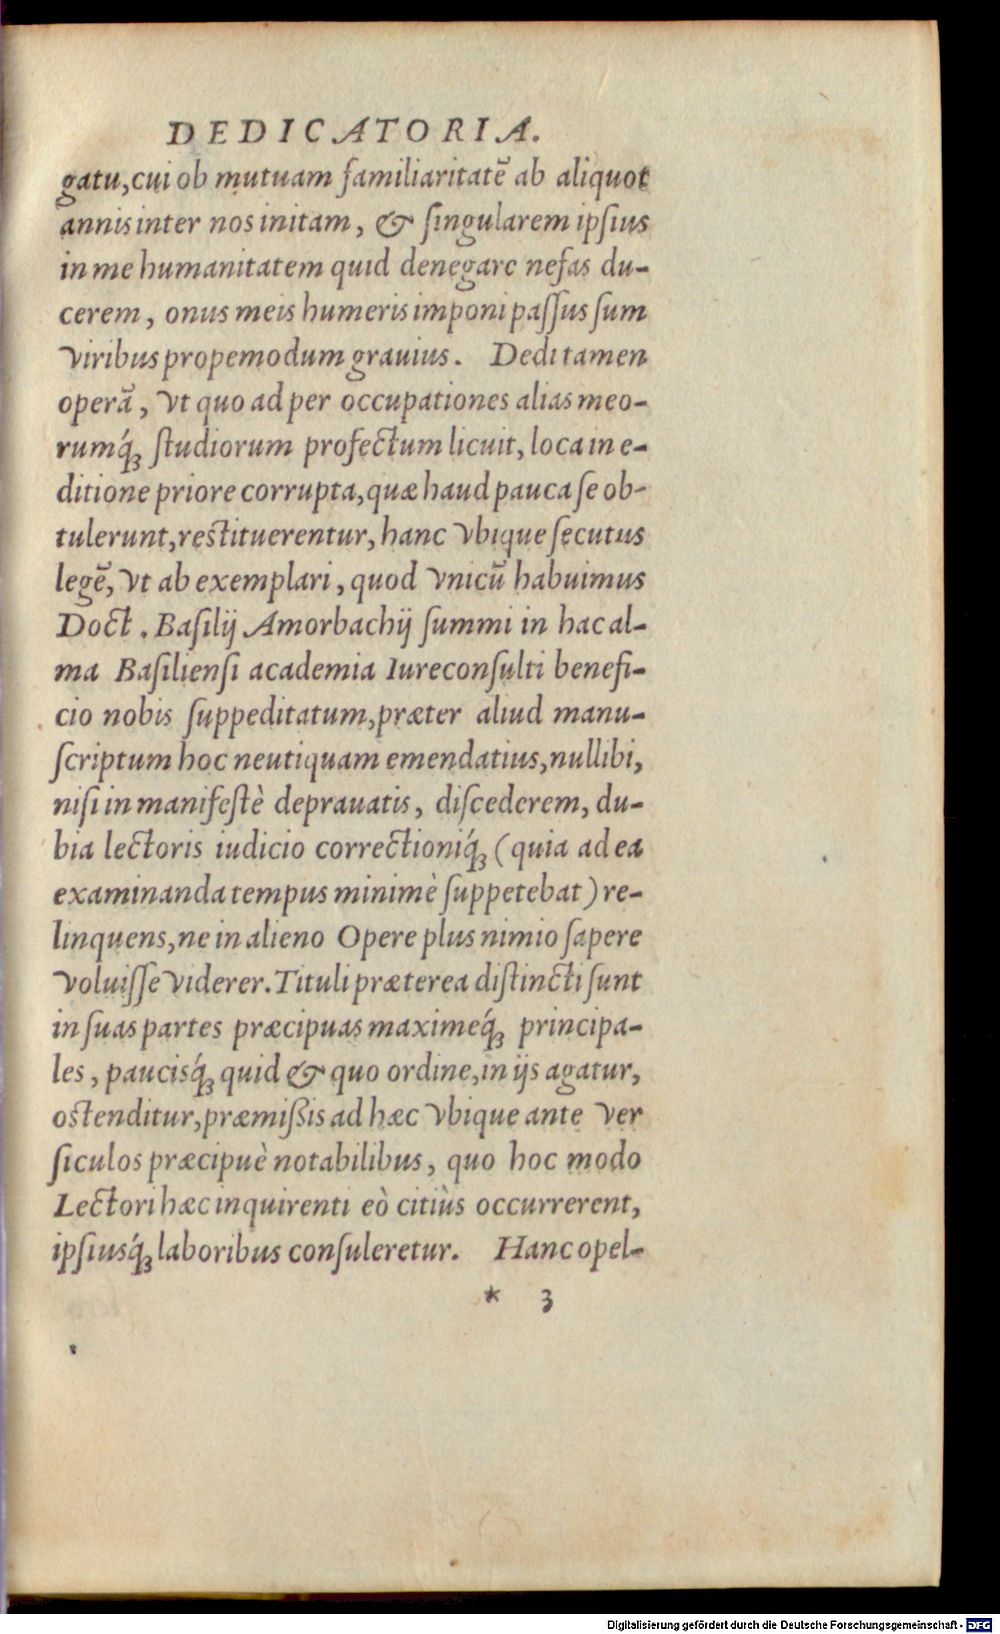 DEDICATORIA.
gatu, cui ob mutuam familiaritatē ab aliquot
annis inter nos initam, & ſingularem ipſius
in me humanitatem quid denegare nefas du-
cerem, onus meis humeris imponi paſſus ſum
viribus propemodum grauius. Dedi tamen
operā, vt quo ad per occupationes alias meo-
rumq́ꝫ ſtudiorum profectum licuit, loca in e-
ditione priore corrupta, quæ haud pauca ſe ob-
tulerunt, reſtituerentur, hanc vbique ſecutus
legē, vt ab exemplari, quod vnicū habuimus
Doct. Baſilij Amorbachij ſummi in hac al-
ma Baſilienſi academia Iureconſulti benefi-
cio nobis ſuppeditatum, præter aliud manu-
ſcriptum hoc neutiquam emendatius, nullibi,
niſi in manifeſtè deprauatis, diſcederem, du-
bia lectoris iudicio correctioniq́ꝫ (quia ad ea
examinanda tempus minimè ſuppetebat) re-
linquens, ne in alieno Opere plus nimio ſapere
voluiſſe viderer. Tituli præterea diſtincti ſunt
in ſuas partes præcipuas maximeq́ꝫ principa-
les, paucisq́ꝫ quid & quo ordine, in ijs agatur,
oſtenditur, præmißis ad hæc vbique ante ver
ſiculos præcipuè notabilibus, quo hoc modo
Lectori hæc inquirenti eò citiùs occurrerent,
ipſiusq́ꝫ laboribus conſuleretur. Hanc opel-
* 3
Digitalisierung gefördert durch die Deutsche Forschungsgemeinschaft - DFG